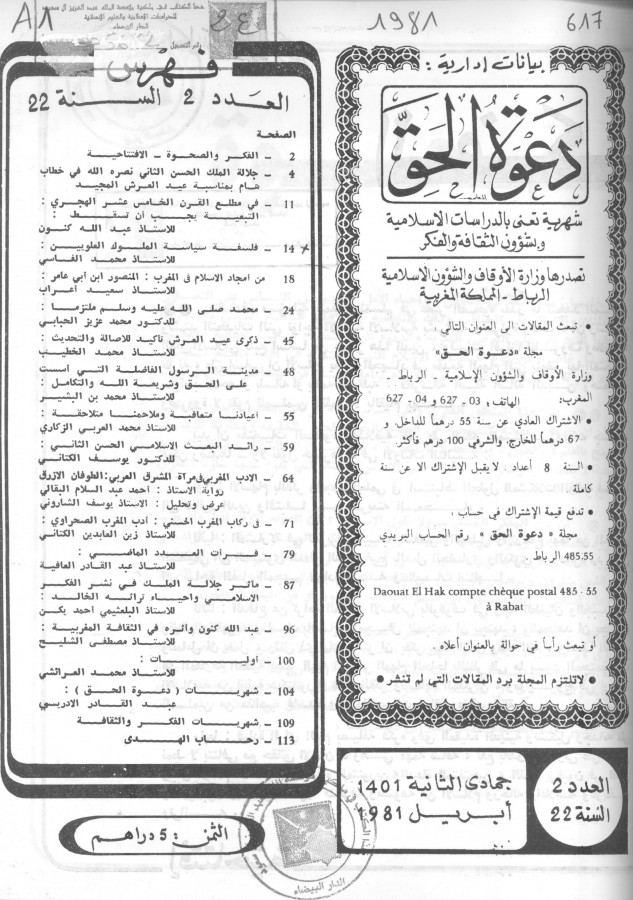 A1
24
1981
617
هذا الكتاب في ملكية مؤسسة الملك عبد العزيز آل سعود
للدراسات الإسلامية والعلوم الإنسانية
الدار البيضاء
رقم التسجيل
بيانات إدارية :
دعوة الحق
شهرية تعنى بالدراسات الاسلامية
وبشؤون الثقافة والفكر
تصدرها وزارة الأوقاف والشؤون الاسلامية
الرباط - المملكة المغربية
• تبعث المقالات الى العنوان التالي :
مجلة «دعوة الحق»
وزارة الأوقاف والشؤون الإسلامية - الرباط -
المغرب: الهاتف: 03 - 627 و 04 - 627
• الاشتراك العادي عن سنة 55 درهماً للداخل، و
67 درهماً للخارج، والشرفي 100 درهم فأكثر.
• السنة 8 أعداد. لا يقبل الإشتراك الا عن سنة
كاملة
• تدفع قيمة الإشتراك في حساب،
مجلة « دعوة الحق » رقم الحساب البريدي
485.55 الرباط.
Daouat El Hak compte chèque postal 485 - 55
à Rabat
أو تبعث رأساً في حوالة بالعنوان أعلاه.
• لا تلتزم المجلة برد المقالات التي لم تنشر •
العدد 2
السنة 22
جمادى الثانية 1401
أبريل 1981
فهرس
العدد 2 السنة 22
الصفحة
2 - الفكر والصحوة - الافتتاحية
4 - جلالة الملك الحسن الثاني نصره الله في خطاب
هام بمناسبة عيد العرش المجيد
11 - في مطلع القرن الخامس عشر الهجري :
التبعية يجب أن تسقط :
للاستاذ عبد الله كنون
14 - فلسفة سياسة الملوك العلويين :
للاستاذ محمد الفاسي
18 من أمجاد الاسلام في المغرب : المنصور ابن أبي عامر :
للاستاذ سعيد أعراب
24 - محمد صلى الله عليه وسلم ملتزما :
للدكتور محمد عزيز الحبابي
45 - ذكرى عيد العرش تأكيد للاصالة والتحديث :
للاستاذ محمد الخطيب
48 - مدينة الرسول الفاضلة التي أسست
على الحق وشريعة الله والتكامل :
للاستاذ محمد بن البشير
55 - أعيادنا متعاقبة وملاحمنا متلاحقة :
للاستاذ محمد العربي الزكاري
59 - رائد البعث الاسلامي الحسن الثاني :
للدكتور يوسف الكتاني
64 - الادب المغربي في مرآة المشرق العربي : الطوفان الازرق
رواية الاستاذ : أحمد عبد السلام البقالي
عرض وتحليل : الاستاذ يوسف الشاروني
71 - في ركاب المغرب الحسني : أدب المغرب الصحراوي :
للاستاذ زين العابدين الكتاني
79 - قراءات العدد الماضي :
للاستاذ عبد القادر العافية
87 - مآثر جلالة الملك في نشر الفكر
الاسلامي واحياء تراثه الخالد :
للاستاذ البلغيثمي أحمد يكن
96 - عبد الله كنون وأثره في الثقافة المغربية :
للاستاذ مصطفى الشليح
100 - أوليات :
للاستاذ محمد العرائشي
104 - شهريات ( دعوة الحق ) :
عبد القادر الادريسي
109 - شهريات الفكر والثقافة
113 - رحاب الهدى
الثمن : 5 دراهم
الدار البيضاء